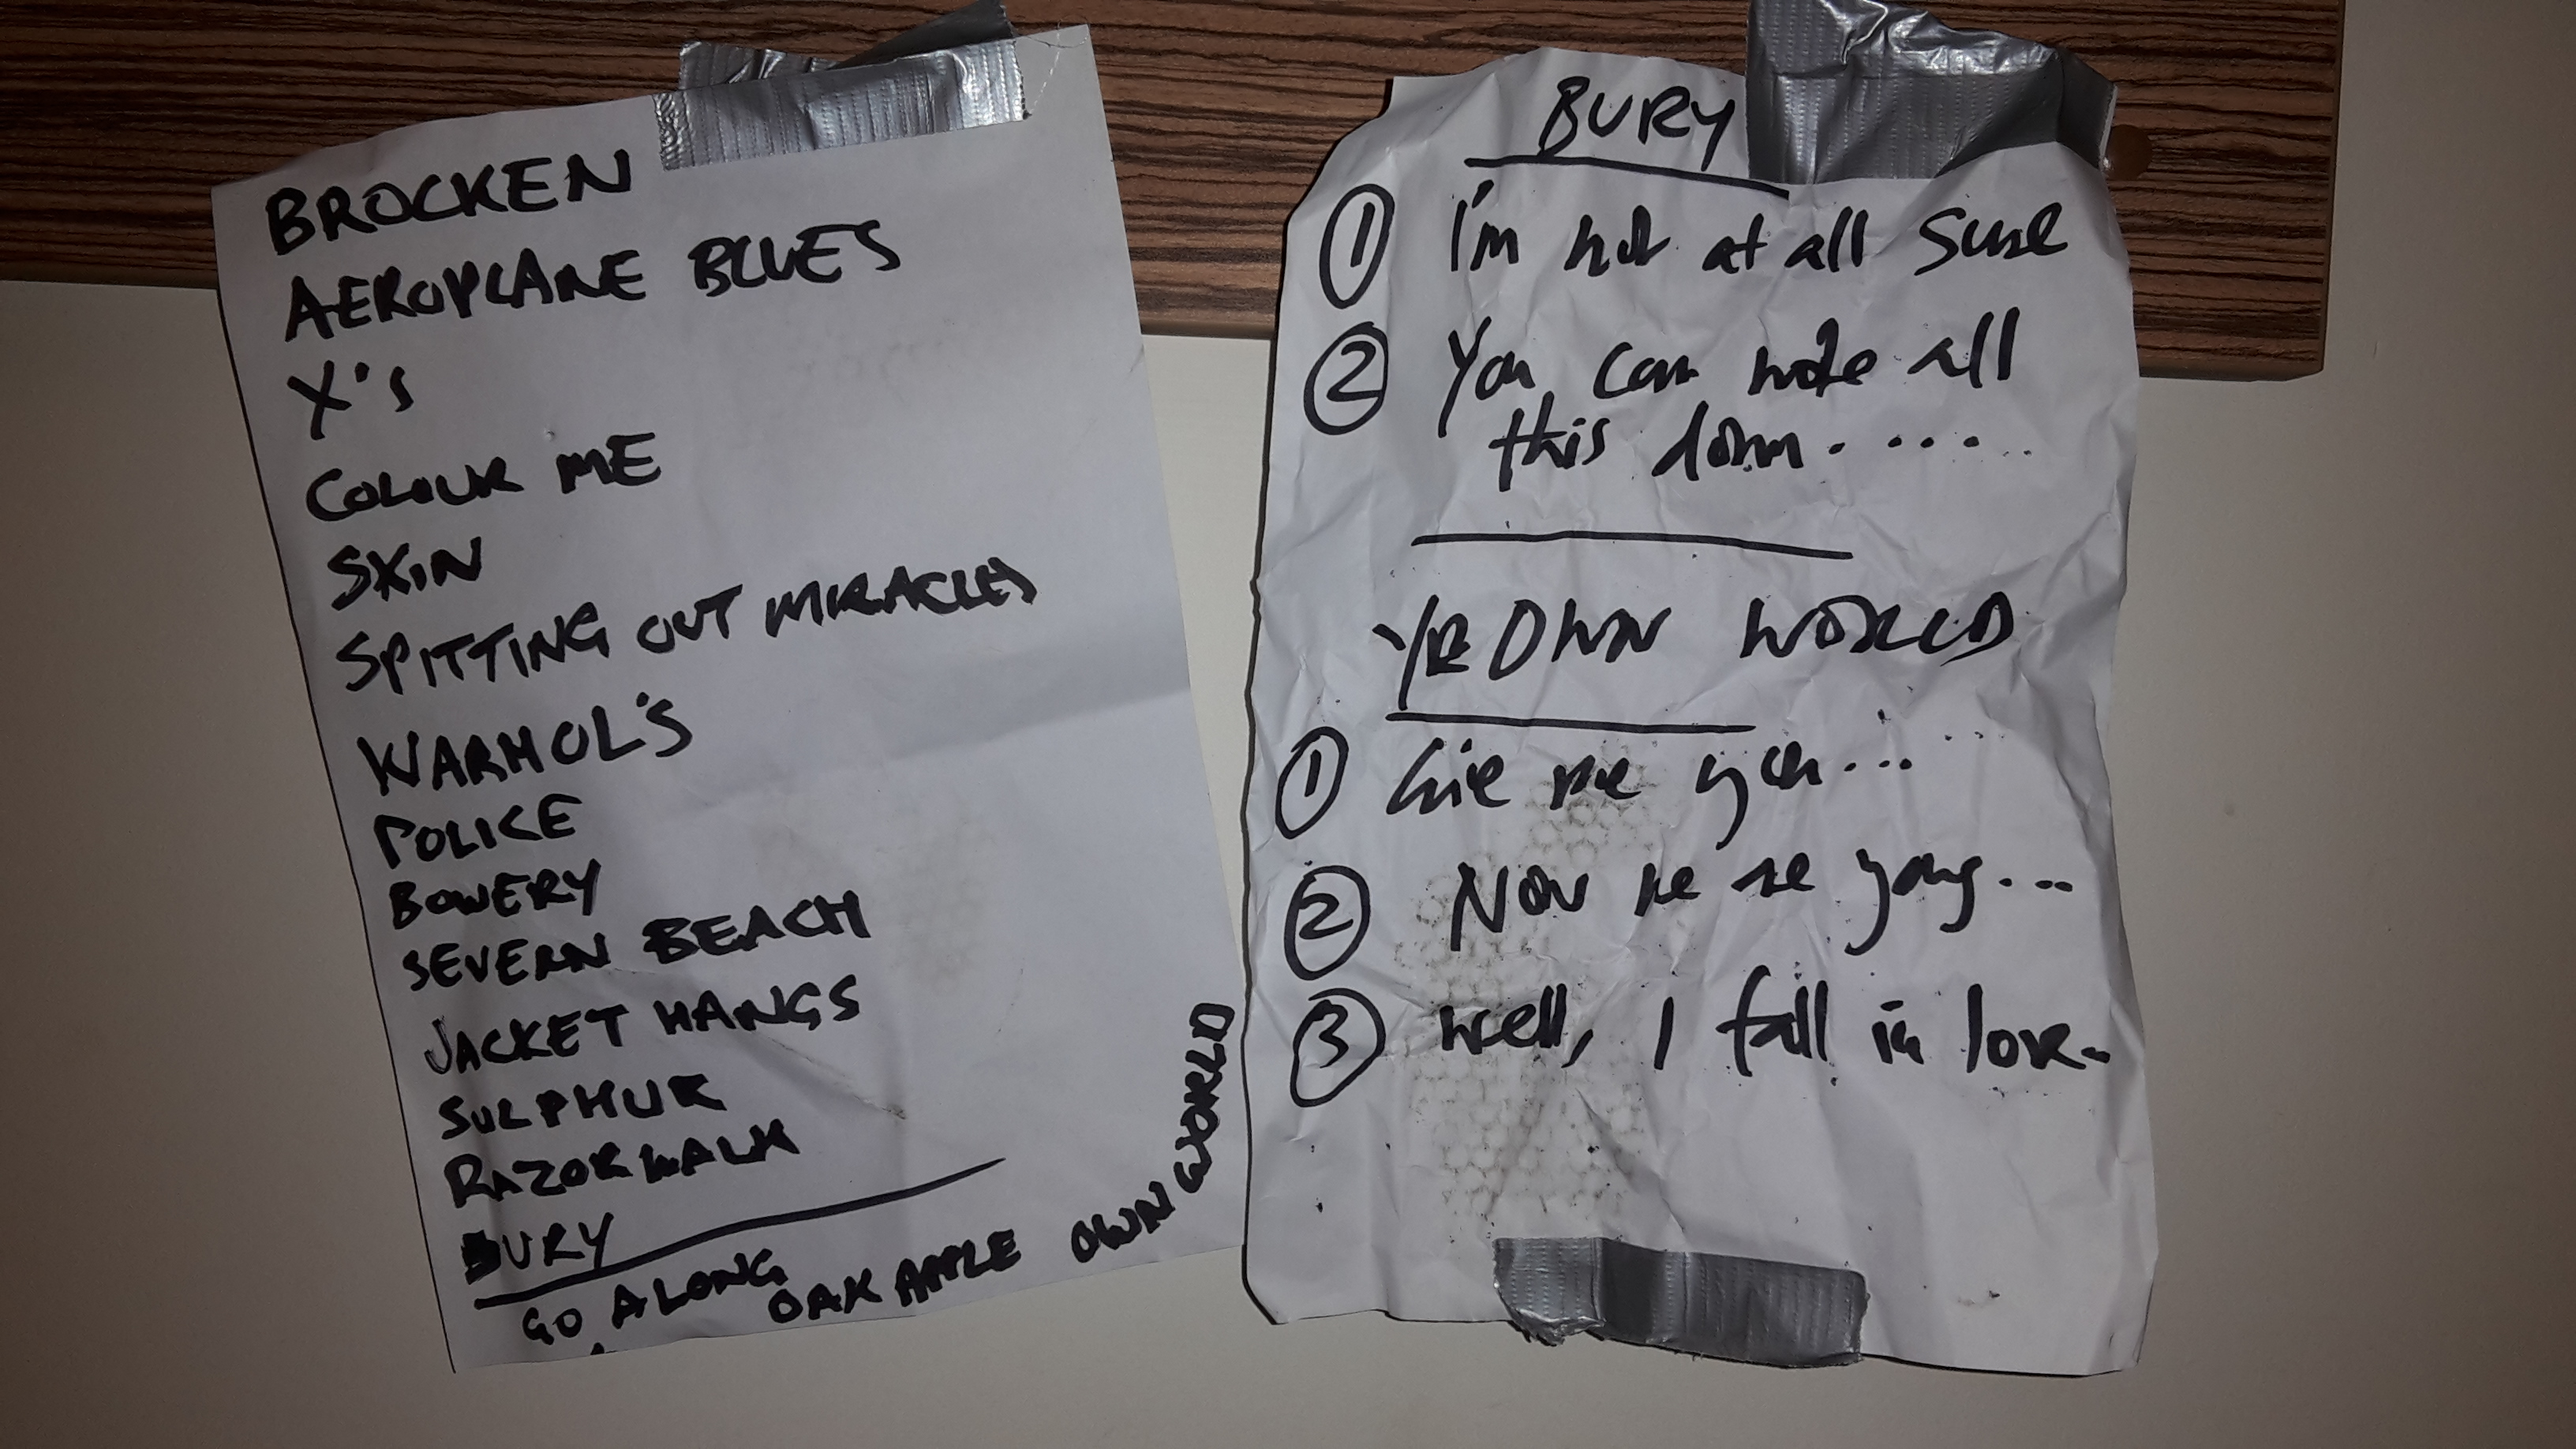 BROCKEN
AEROPLANE BLUES
X's
COLOUR ME
SKIN
SPITTING OUT MIRACLES
WARHOL'S
POLICE
BOWERY
SEVERN BEACH
JACKET HANGS
SULPHUR
RAZORWALK
BURY
GO ALONG
OAK APPLE
OWN WORLD
BURY
① I'm not at all sure
② You can note all
this down.....
YR OWN WORLD
① Give me your...
② Now we're young...
③ Well, I fall in love.